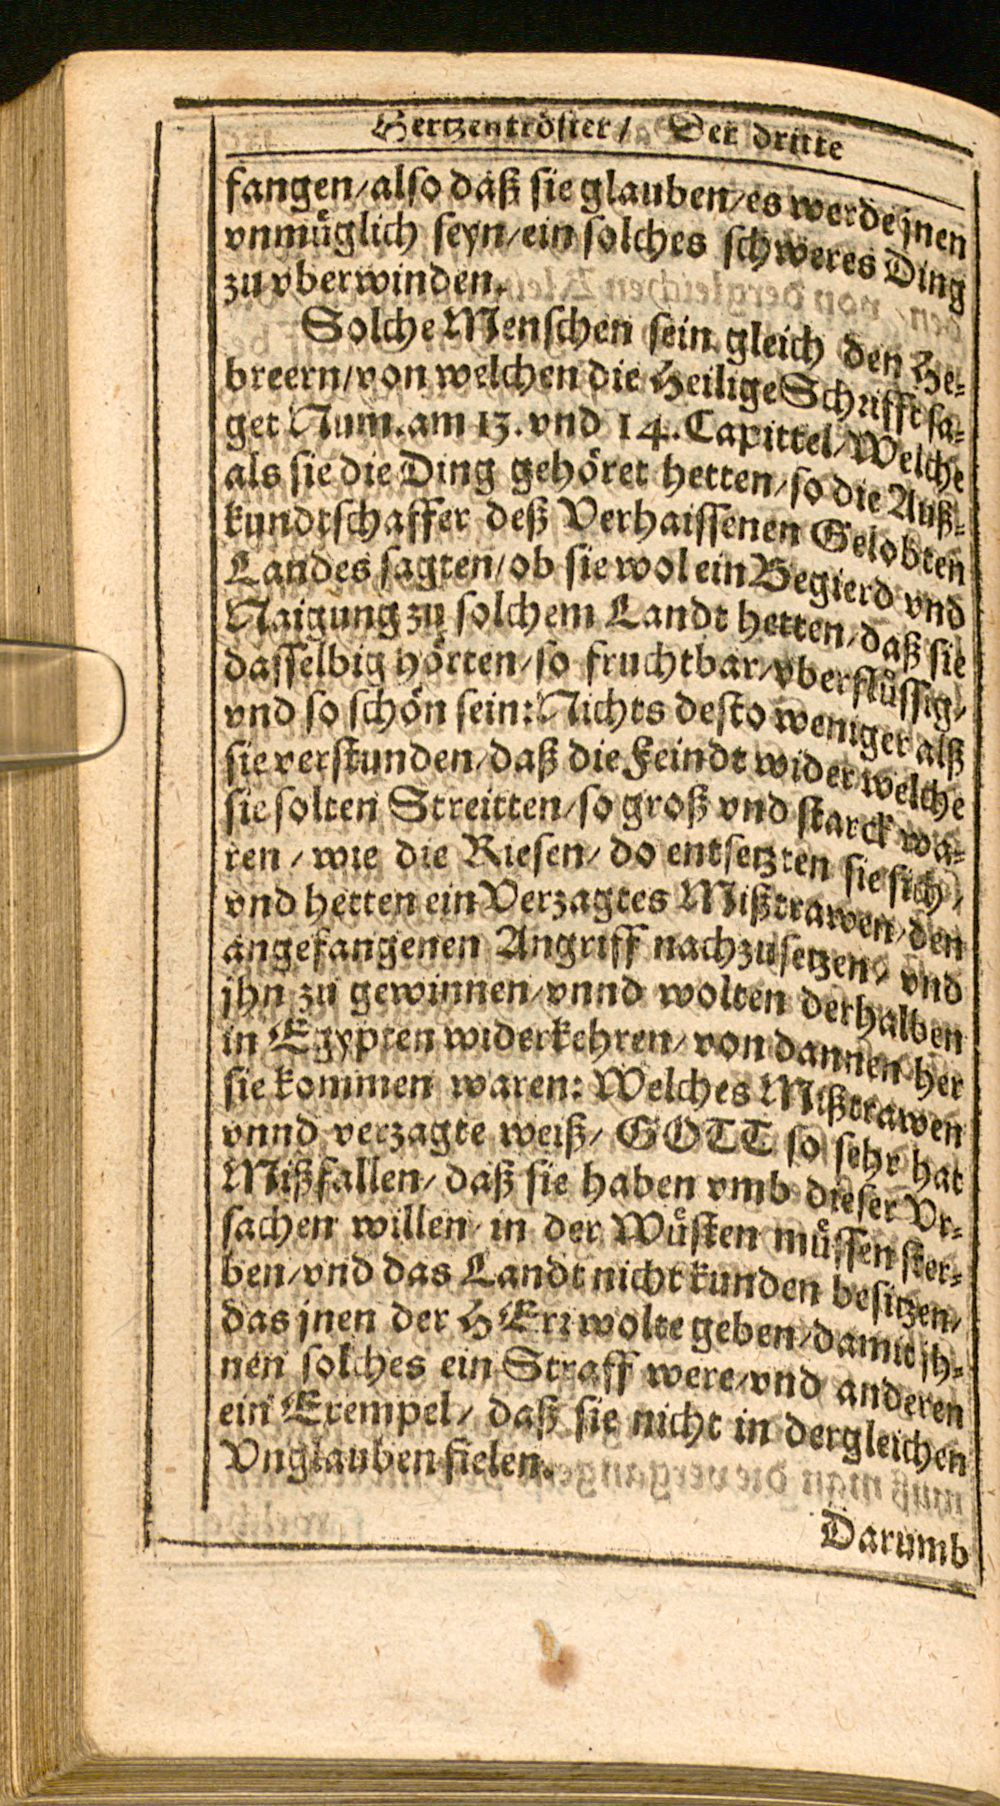 Hertzentröster / Der dritte
fangen/also daß sie glauben/es werde jnen
vnmüglich seyn/ein solches schweres Ding
zu vberwinden.
Solche Menschen sein gleich den He-
breern/von welchen die Heilige Schrifft sa-
get Num. am 13. vnd 14. Capittel/Welche
als sie die Ding gehöret hetten/so die Auß-
kundtschaffer deß Verhaissenen Gelobten
Landes sagten/ob sie wol ein Begierd vnd
Naigung zu solchem Landt hetten/daß sie
dasselbig hörten/so fruchtbar/vberflüssig/
vnd so schön sein: Nichts desto weniger alß
sie verstunden/daß die Feindt wider welche
sie solten Streitten/so groß vnd starck wa-
ren / wie die Riesen/ do entsetzten sie sich/
vnd hetten ein Verzagtes Mißtrawen/den
angefangenen Angriff nachzusetzen/ vnd
jhn zu gewinnen/vnnd wolten derhalben
in Egypten widerkehren/von dannen her
sie kommen waren: Welches Mißtrawen
vnnd verzagte weiß/ GOTT so sehr hat
Mißfallen/ daß sie haben vmb dieser Vr-
sachen willen/in der Wüsten müssen ster-
ben/vnd das Landt nicht kunden besitzen/
das jnen der HErr wolte geben/damit jh-
nen solches ein Straff were/vnd anderen
ein Exempel/ daß sie nicht in dergleichen
Vnglauben fielen.
Darumb